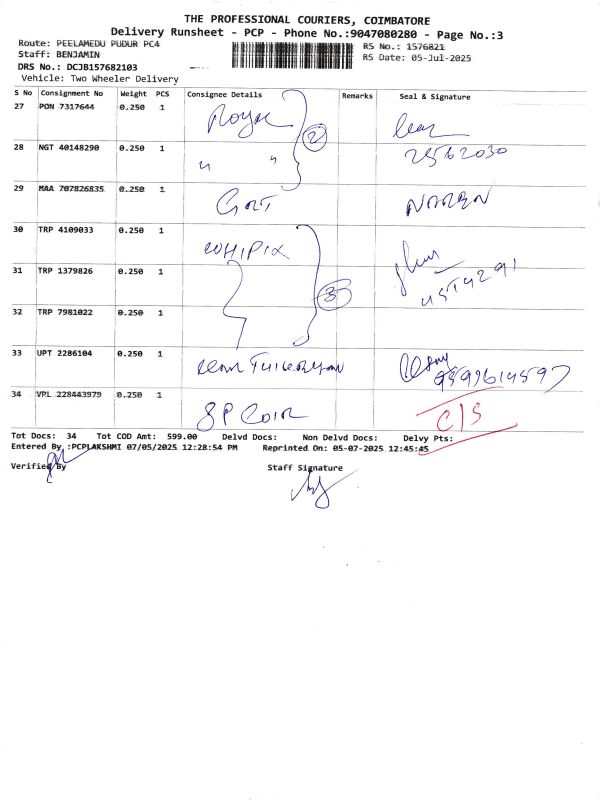 THE PROFESSIONAL COURIERS, COIMBATORE
Delivery Runsheet - PCP - Phone No.:9047080280 - Page No.:3
Route: PEELAMEDU PUDUR PC4
Staff: BENJAMIN
DRS No.: DCJB157682103
Vehicle: Two Wheeler Delivery
RS No.: 1576821
RS Date: 05-Jul-2025
S No Consignment No Weight PCS Consignee Details Remarks Seal & Signature
27 PON 7317644 0.250 1 Royal
28 NGT 40148290 0.250 1 " " 2
29 MAA 707826835 0.250 1 NAREN
30 TRP 4109033 0.250 1 WHIPIX
31 TRP 1379826 0.250 1 3
32 TRP 7981022 0.250 1
33 UPT 2286104 0.250 1
34 VRL 228443979 0.250 1 SP Coir C/S
Tot Docs: 34 Tot COD Amt: 599.00 Delvd Docs: Non Delvd Docs: Delvy Pts:
Entered By :PCPLAKSHMI 07/05/2025 12:28:54 PM Reprinted On: 05-07-2025 12:45:45
Verified By Staff Signature